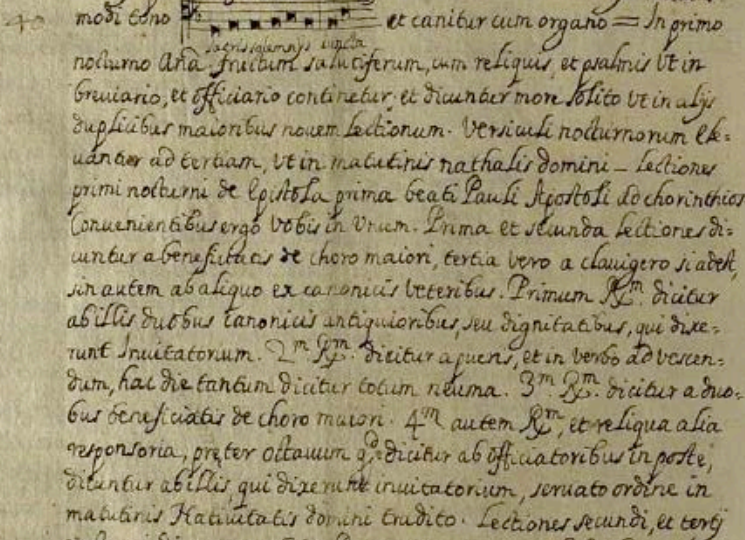 40 modi tono et canitur cum organo = In primo
sacris solemnijs iuncta
nocturno Aña. fructum salutiferum, cum reliquis, et psalmis vt in
breuiario, et officiario continetur, et dicuntur more solito vt in alijs
duplicibus maioribus nouem Lectionum. Versiculi nocturnorum ele-
uantur ad tertiam, vt in matutinis nathalis domini _ Lectiones
primi nocturni de Epistola prima beati Pauli Apostoli ad chorinthios
Conuenientibus ergo vobis in vnum. Prima et secunda Lectiones di=
cuntur a beneficiatis de choro maiori, tertia vero a clauigero si adest,
sin autem ab aliquo ex canonicis veteribus. Primum ℞m. dicitur
ab illis duobus canonicis antiquioribus, seu dignitatibus, qui dixe-
runt Inuitatorium. 2m ℞m. dicitur a pueris, et in verbo ad vescen-
dum, hac die tantum dicitur totum neuma. 3m. ℞m. dicitur a duo-
bus beneficiatis de choro maiori. 4m autem ℞m, et reliqua alia
responsoria, pręter octauum qd dicitur ab officiatoribus in poste,
dicuntur ab illis, qui dixerunt inuitatorium, seruato ordine in
matutinis Natiuitatis domini tradito. Lectiones secundi, et tertij